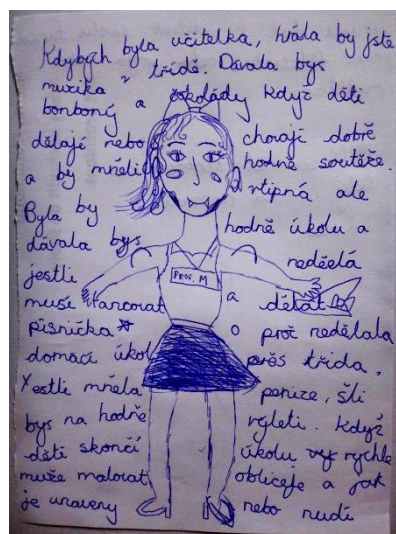 Kdybych byla učitelka, hrála by jste
muzika v třídě. Dávala bys
bonboný a čokolády když děti
dělají nebo chovají dobře
a by mněli hodně soutěže.
Byla by vtipná ale
dávala bys hodně úkolu a
jestli neděelá
musí tancovat a dělat
písnička o proč nedělala
domací úkol přes třída.
Yestli mněla peníze, šli
bys na hodně vyleti. Když
děti skončí úkolu rychle
muže malovat obličeje a jak
je unaveny nebo nudí
PROF. M